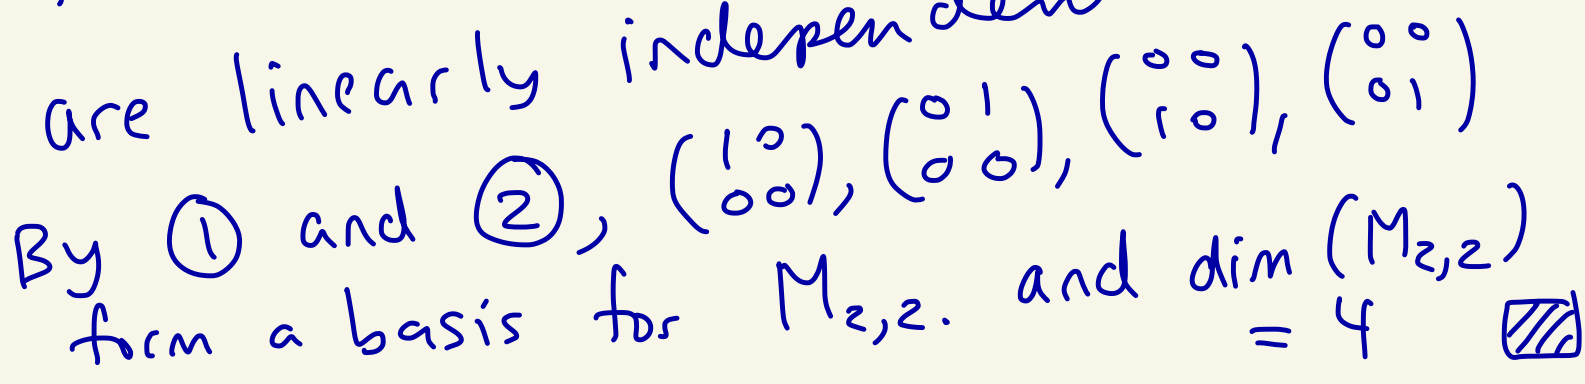 are linearly independent
By ① and ②, (1 0 / 0 0), (0 1 / 0 0), (0 0 / 1 0), (0 0 / 0 1)
form a basis for M₂,₂. and dim (M₂,₂)
= 4